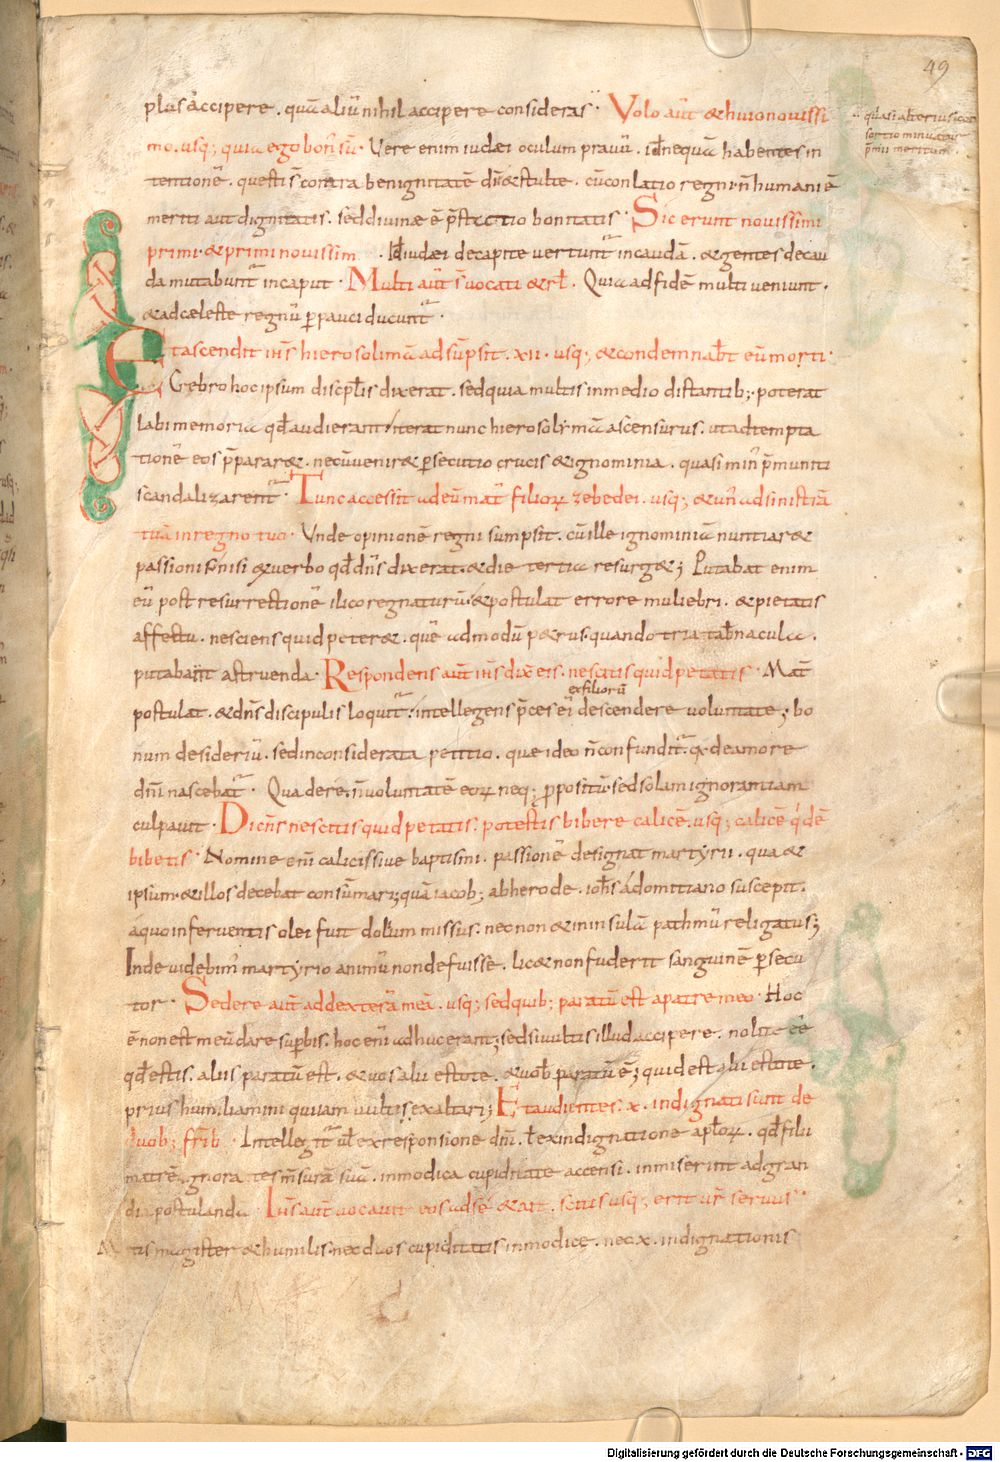 49
plus accipere . quā aliū nihil accipere consideras Volo aūt & huic nouissi
mo . usq; quia ego bon̄ sū · Vere enim iudæi oculum prauū . id nequā habentes in
tentionē . questi s̄ contra benignitatē dn̄i & stulte . cū conlatio regni n̄ humani ē
meriti aut dignitatis . sed diuinæ ē p̄statio bonitatis · Sic erunt nouissimi
primi · & primi nouissim Id iudæi de capite vertunt̄ in caudā . & gentes de cau
da mutabunt̄ in caput · Multi aūt s̄ uocati & rl̄ . Quia ad fidē multi veniunt .
& ad cæleste regnū p̄pauci ducunt̄ ·
Et ascendit ih̄s hierosolimā adsūpsit . xii . usq; & condemnab̄t eū morti ·
Crebro hoc ipsum discip̄lis dixerat . sed quia multis in medio distantib; · poterat
labi memoria qđ audierant iterat nunc hierosolimā ascensurus . ut ad tempta
tionē eos p̄parar& . ne cū venir& p̄secutio crucis & ignominia . quasi min̄ p̄muniti
scandalizarent̄ · Tunc accessit ad eū mat̄ filioꝝ zebedei . usq; & un̄ ad sinistrā
tuā in regno tuo · Vnde opinionē regni sumpsit . cū ille ignominiā nuntiar&
passionis nisi ex verbo qđ dn̄s dixerat . & die tertia resurg&; Putabat enim
eū post resurrectionē ilico regnaturū · & postulat errore muliebri . & pietatis
affectu . nesciens quid peter& . quē admodū p&rus · quando tria tab̄nacula .
putabant astruenda · Respondens aūt ih̄s dix̄ eis . nescitis quid petatis · Mat̄
ex filiorū
postulat . & dn̄s discipulis loquit̄ . intellegens p̄ces ei descendere voluntate; bo
num desideriū . sed inconsiderata petitio . que ideo n̄ confundit̄ . q̄ de amore
dn̄i nascebat̄ · Qua de re . n̄ voluntatē eoꝝ neq; p̄positū · sed solam ignorantiam
culpauit · Dic̄ ih̄s nescitis quid petatis . potestis bibere calicē . usq; calicē q́dē
bibetis · Nomine eni calicis sive baptismi . passionē designat martyrii . qua &
ipsum · & illos decebat consūmari; quā iacob; ab herode . ioh̄s á domitiano suscepit .
á quo in ferventis olei fuit dolium missus . nec non & in insulā pathmū religatus;
Inde videbim̄ martyrio animū non defuisse . lic& non fuderit sanguinē p̄secu
tor · Sedere aūt ad dexterā meā . usq; sed quib; paratū est a patre meo · Hoc
ē non est meū dare sup̄bis . hoc eni adhuc erant; sed si vultis illud accipere . nolite ēē
qđ estis . aliis paratū est . & vos alii estote . & uob̄ paratū ē; quid est alii estote .
prius humiliamini qui iam vultis exaltari; Et audientes . x . indignati sunt de
duob; fr̄ib · Intellegit̄ ul̄ ex responsione dn̄i . l̄ ex indignatione apl̄oꝝ . qđ filii
matrē ignorantes m̄surā suā . inmodica cupiditate accensi . inmiserint ad gran
dia postulanda · Ih̄s aūt vocavit eos ad sé & ait . scitis usq; erit ur̄ servus ·
Mitis magister & humilis · nec duos cupiditatis inmodicę . nec x . indignationis
Digitalisierung gefördert durch die Deutsche Forschungsgemeinschaft - DFG